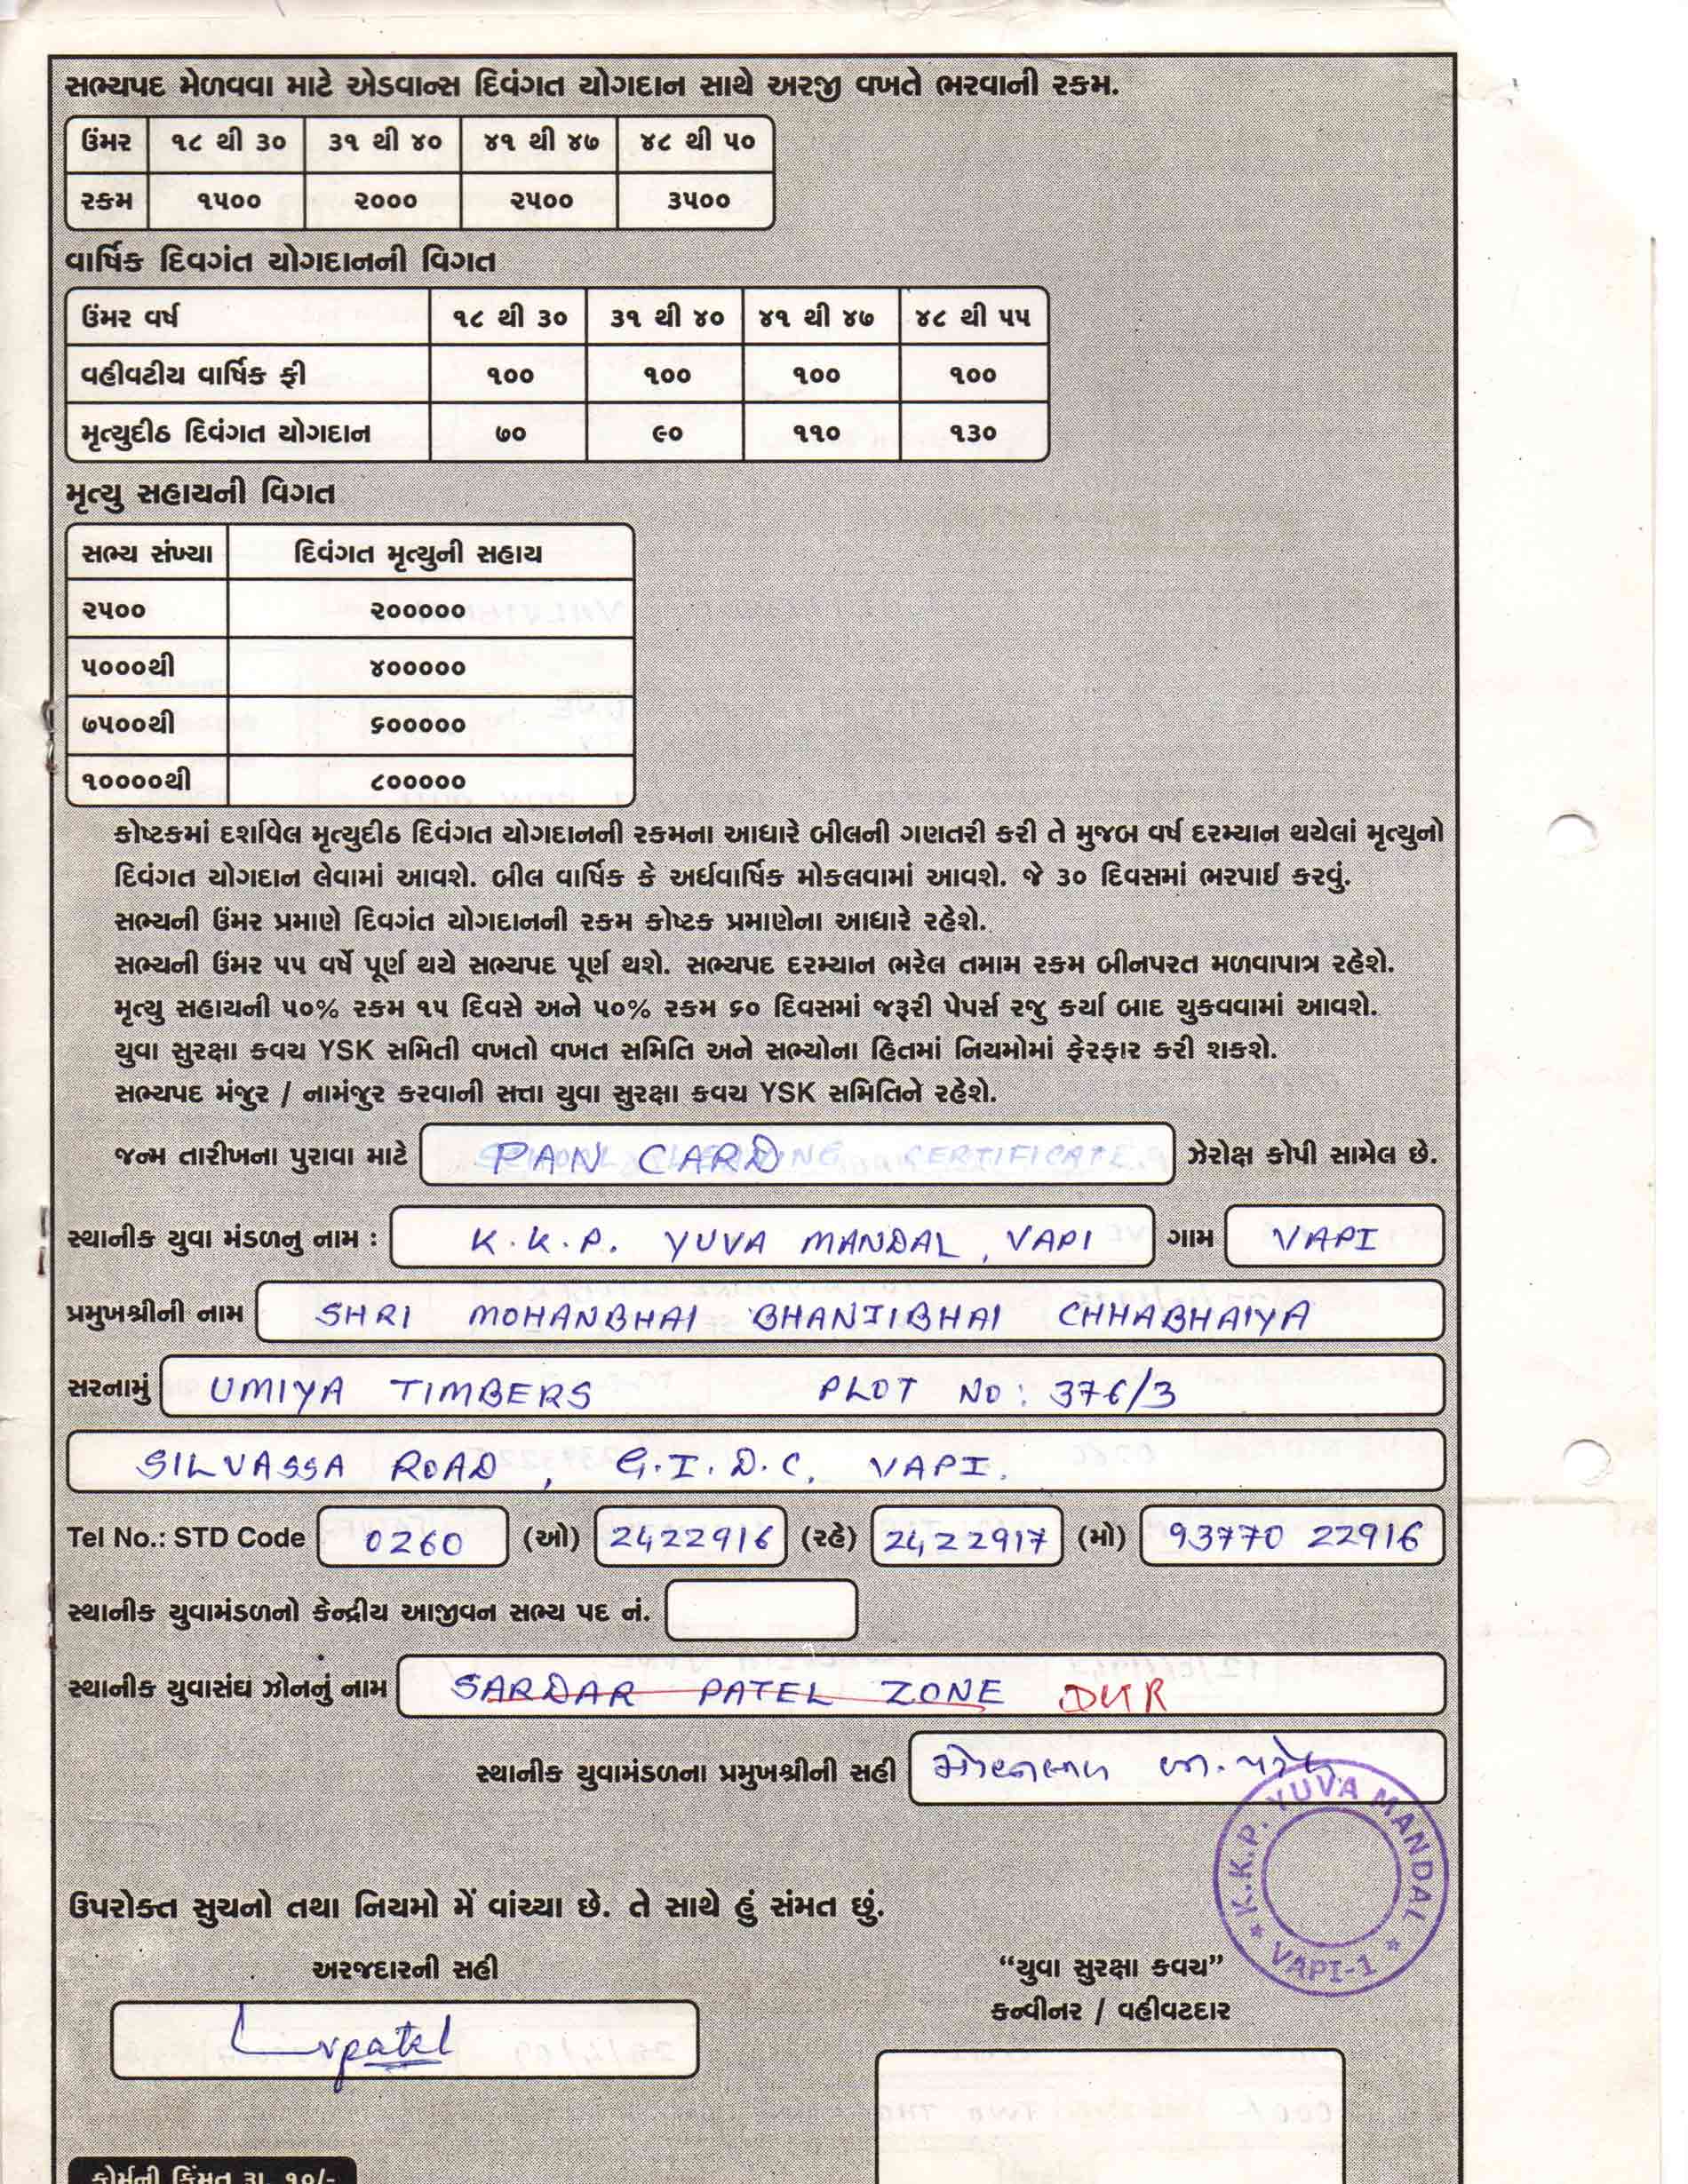 સભ્યપદ મેળવવા માટે એડવાન્સ દિવંગત યોગદાન સાથે અરજી વખતે ભરવાની રકમ.
ઉંમર ૧૮ થી ૩૦ ૩૧ થી ૪૦ ૪૧ થી ૪૭ ૪૮ થી ૫૦
રકમ ૧૫૦૦ ૨૦૦૦ ૨૫૦૦ ૩૫૦૦
વાર્ષિક દિવગંત યોગદાનની વિગત
ઉંમર વર્ષ ૧૮ થી ૩૦ ૩૧ થી ૪૦ ૪૧ થી ૪૭ ૪૮ થી ૫૫
વહીવટીય વાર્ષિક ફી ૧૦૦ ૧૦૦ ૧૦૦ ૧૦૦
મૃત્યુદીઠ દિવંગત યોગદાન ૭૦ ૯૦ ૧૧૦ ૧૩૦
મૃત્યુ સહાયની વિગત
સભ્ય સંખ્યા દિવંગત મૃત્યુની સહાય
૨૫૦૦ ૨૦૦૦૦૦
૫૦૦૦થી ૪૦૦૦૦૦
૭૫૦૦થી ૬૦૦૦૦૦
૧૦૦૦૦થી ૮૦૦૦૦૦
કોષ્ટકમાં દર્શાવેલ મૃત્યુદીઠ દિવંગત યોગદાનની રકમના આધારે બીલની ગણતરી કરી તે મુજબ વર્ષ દરમ્યાન થયેલાં મૃત્યુનો
દિવંગત યોગદાન લેવામાં આવશે. બીલ વાર્ષિક કે અર્ધવાર્ષિક મોકલવામાં આવશે. જે ૩૦ દિવસમાં ભરપાઈ કરવું.
સભ્યની ઉંમર પ્રમાણે દિવગંત યોગદાનની રકમ કોષ્ટક પ્રમાણેના આધારે રહેશે.
સભ્યની ઉંમર ૫૫ વર્ષે પૂર્ણ થયે સભ્યપદ પૂર્ણ થશે. સભ્યપદ દરમ્યાન ભરેલ તમામ રકમ બીનપરત મળવાપાત્ર રહેશે.
મૃત્યુ સહાયની ૫૦% રકમ ૧૫ દિવસે અને ૫૦% રકમ ૬૦ દિવસમાં જરૂરી પેપર્સ રજુ કર્યા બાદ ચુકવવામાં આવશે.
યુવા સુરક્ષા કવચ YSK સમિતી વખતો વખત સમિતિ અને સભ્યોના હિતમાં નિયમોમાં ફેરફાર કરી શકશે.
સભ્યપદ મંજુર / નામંજુર કરવાની સત્તા યુવા સુરક્ષા કવચ YSK સમિતિને રહેશે.
જન્મ તારીખના પુરાવા માટે PAN CARD ઝેરોક્ષ કોપી સામેલ છે.
સ્થાનીક યુવા મંડળનુ નામ : K.K.P. YUVA MANDAL, VAPI ગામ VAPI
પ્રમુખશ્રીની નામ SHRI MOHANBHAI BHANJIBHAI CHHABHAIYA
સરનામું UMIYA TIMBERS PLOT NO: 376/3
SILVASSA ROAD, G.I.D.C. VAPI.
Tel No.: STD Code 0260 (ઓ) 2422916 (રહે) 2422917 (મો) 93770 22916
સ્થાનીક યુવામંડળનો કેન્દ્રીય આજીવન સભ્ય પદ નં.
સ્થાનીક યુવાસંઘ ઝોનનું નામ SARDAR PATEL ZONE
સ્થાનીક યુવામંડળના પ્રમુખશ્રીની સહી
K.K.P. YUVA MANDAL
VAPI-1
ઉપરોક્ત સુચનો તથા નિયમો મેં વાંચ્યા છે. તે સાથે હું સંમત છું.
અરજદારની સહી “યુવા સુરક્ષા કવચ”
કન્વીનર / વહીવટદાર
ફોર્મની કિંમત રૂા. ૧૦/-